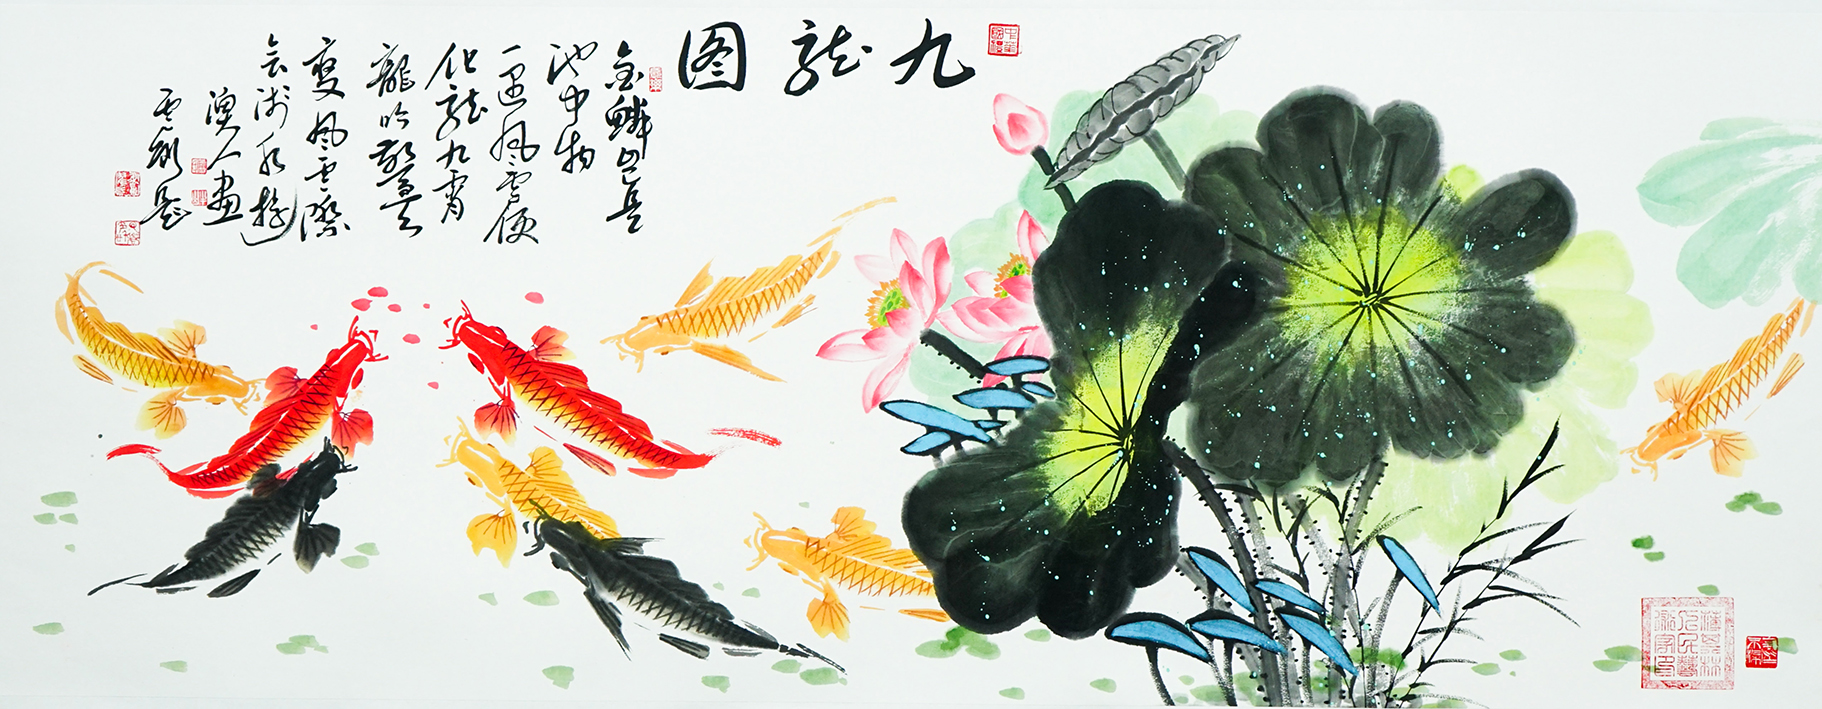 九龙图
金鳞岂是
池中物
一遇风云便
化龙九霄
龍吟惊天
变风云际
会浅水游
人画
题